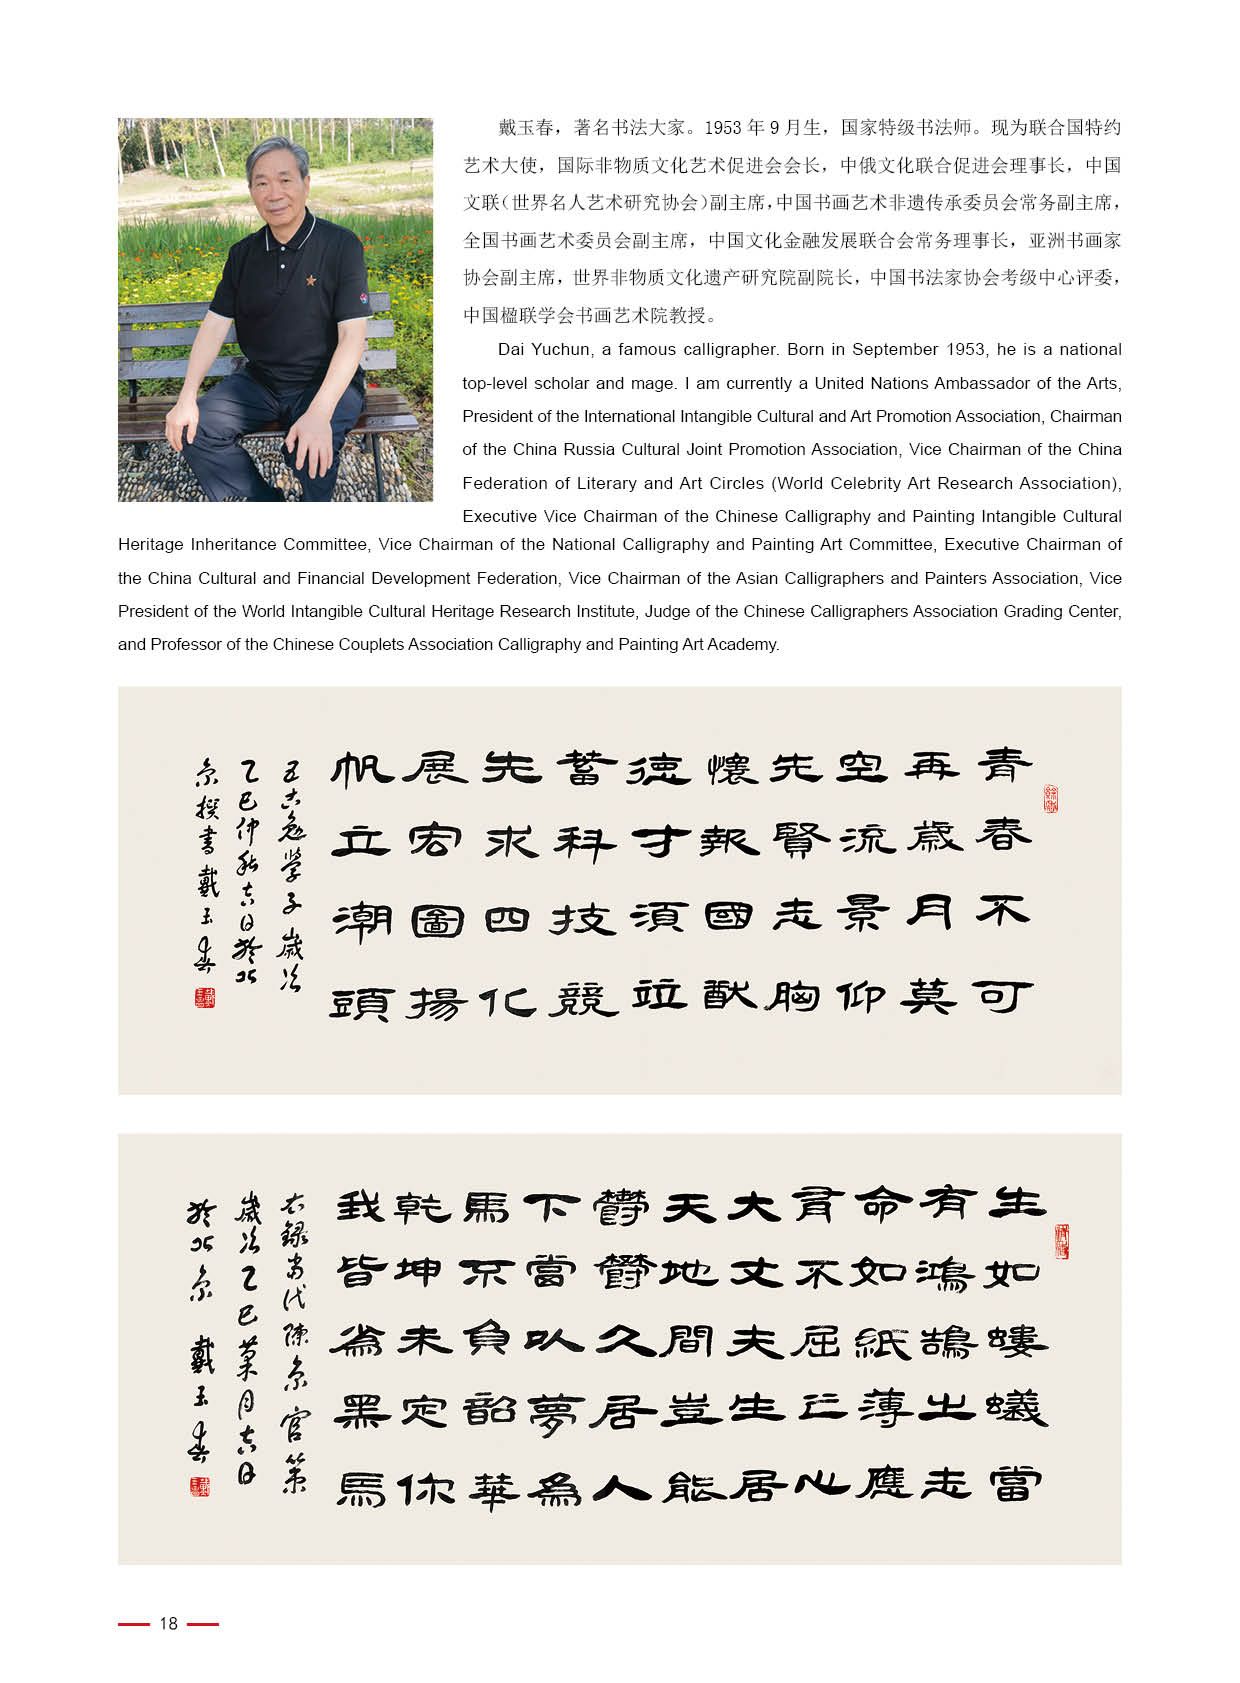 戴玉春，著名书法大家。1953 年 9 月生，国家特级书法师。现为联合国特约
艺术大使，国际非物质文化艺术促进会会长，中俄文化联合促进会理事长，中国
文联（世界名人艺术研究协会）副主席，中国书画艺术非遗传承委员会常务副主席，
全国书画艺术委员会副主席，中国文化金融发展联合会常务理事长，亚洲书画家
协会副主席，世界非物质文化遗产研究院副院长，中国书法家协会考级中心评委，
中国楹联学会书画艺术院教授。
Dai Yuchun, a famous calligrapher. Born in September 1953, he is a national
top-level scholar and mage. I am currently a United Nations Ambassador of the Arts,
President of the International Intangible Cultural and Art Promotion Association, Chairman
of the China Russia Cultural Joint Promotion Association, Vice Chairman of the China
Federation of Literary and Art Circles (World Celebrity Art Research Association),
Executive Vice Chairman of the Chinese Calligraphy and Painting Intangible Cultural
Heritage Inheritance Committee, Vice Chairman of the National Calligraphy and Painting Art Committee, Executive Chairman of
the China Cultural and Financial Development Federation, Vice Chairman of the Asian Calligraphers and Painters Association, Vice
President of the World Intangible Cultural Heritage Research Institute, Judge of the Chinese Calligraphers Association Grading Center,
and Professor of the Chinese Couplets Association Calligraphy and Painting Art Academy.
青春不可
再歲月莫
空流景仰
先賢志胸
懷報國猷
德才須竝
蓄科技競
先求四化
展宏圖揚
帆立潮頭
五古勉學子歲次
乙巳仲秋吉日於北
京撰書戴玉春
生如螻蟻當
有鴻鵠之志
命如紙薄應
有不屈之心
大丈夫生居
天地間豈能
鬱鬱久居人
下當以夢為
馬不負韶華
乾坤未定你
我皆為黑馬
右錄當代陳京官策
歲次乙巳月吉日
於北京 戴玉春
18